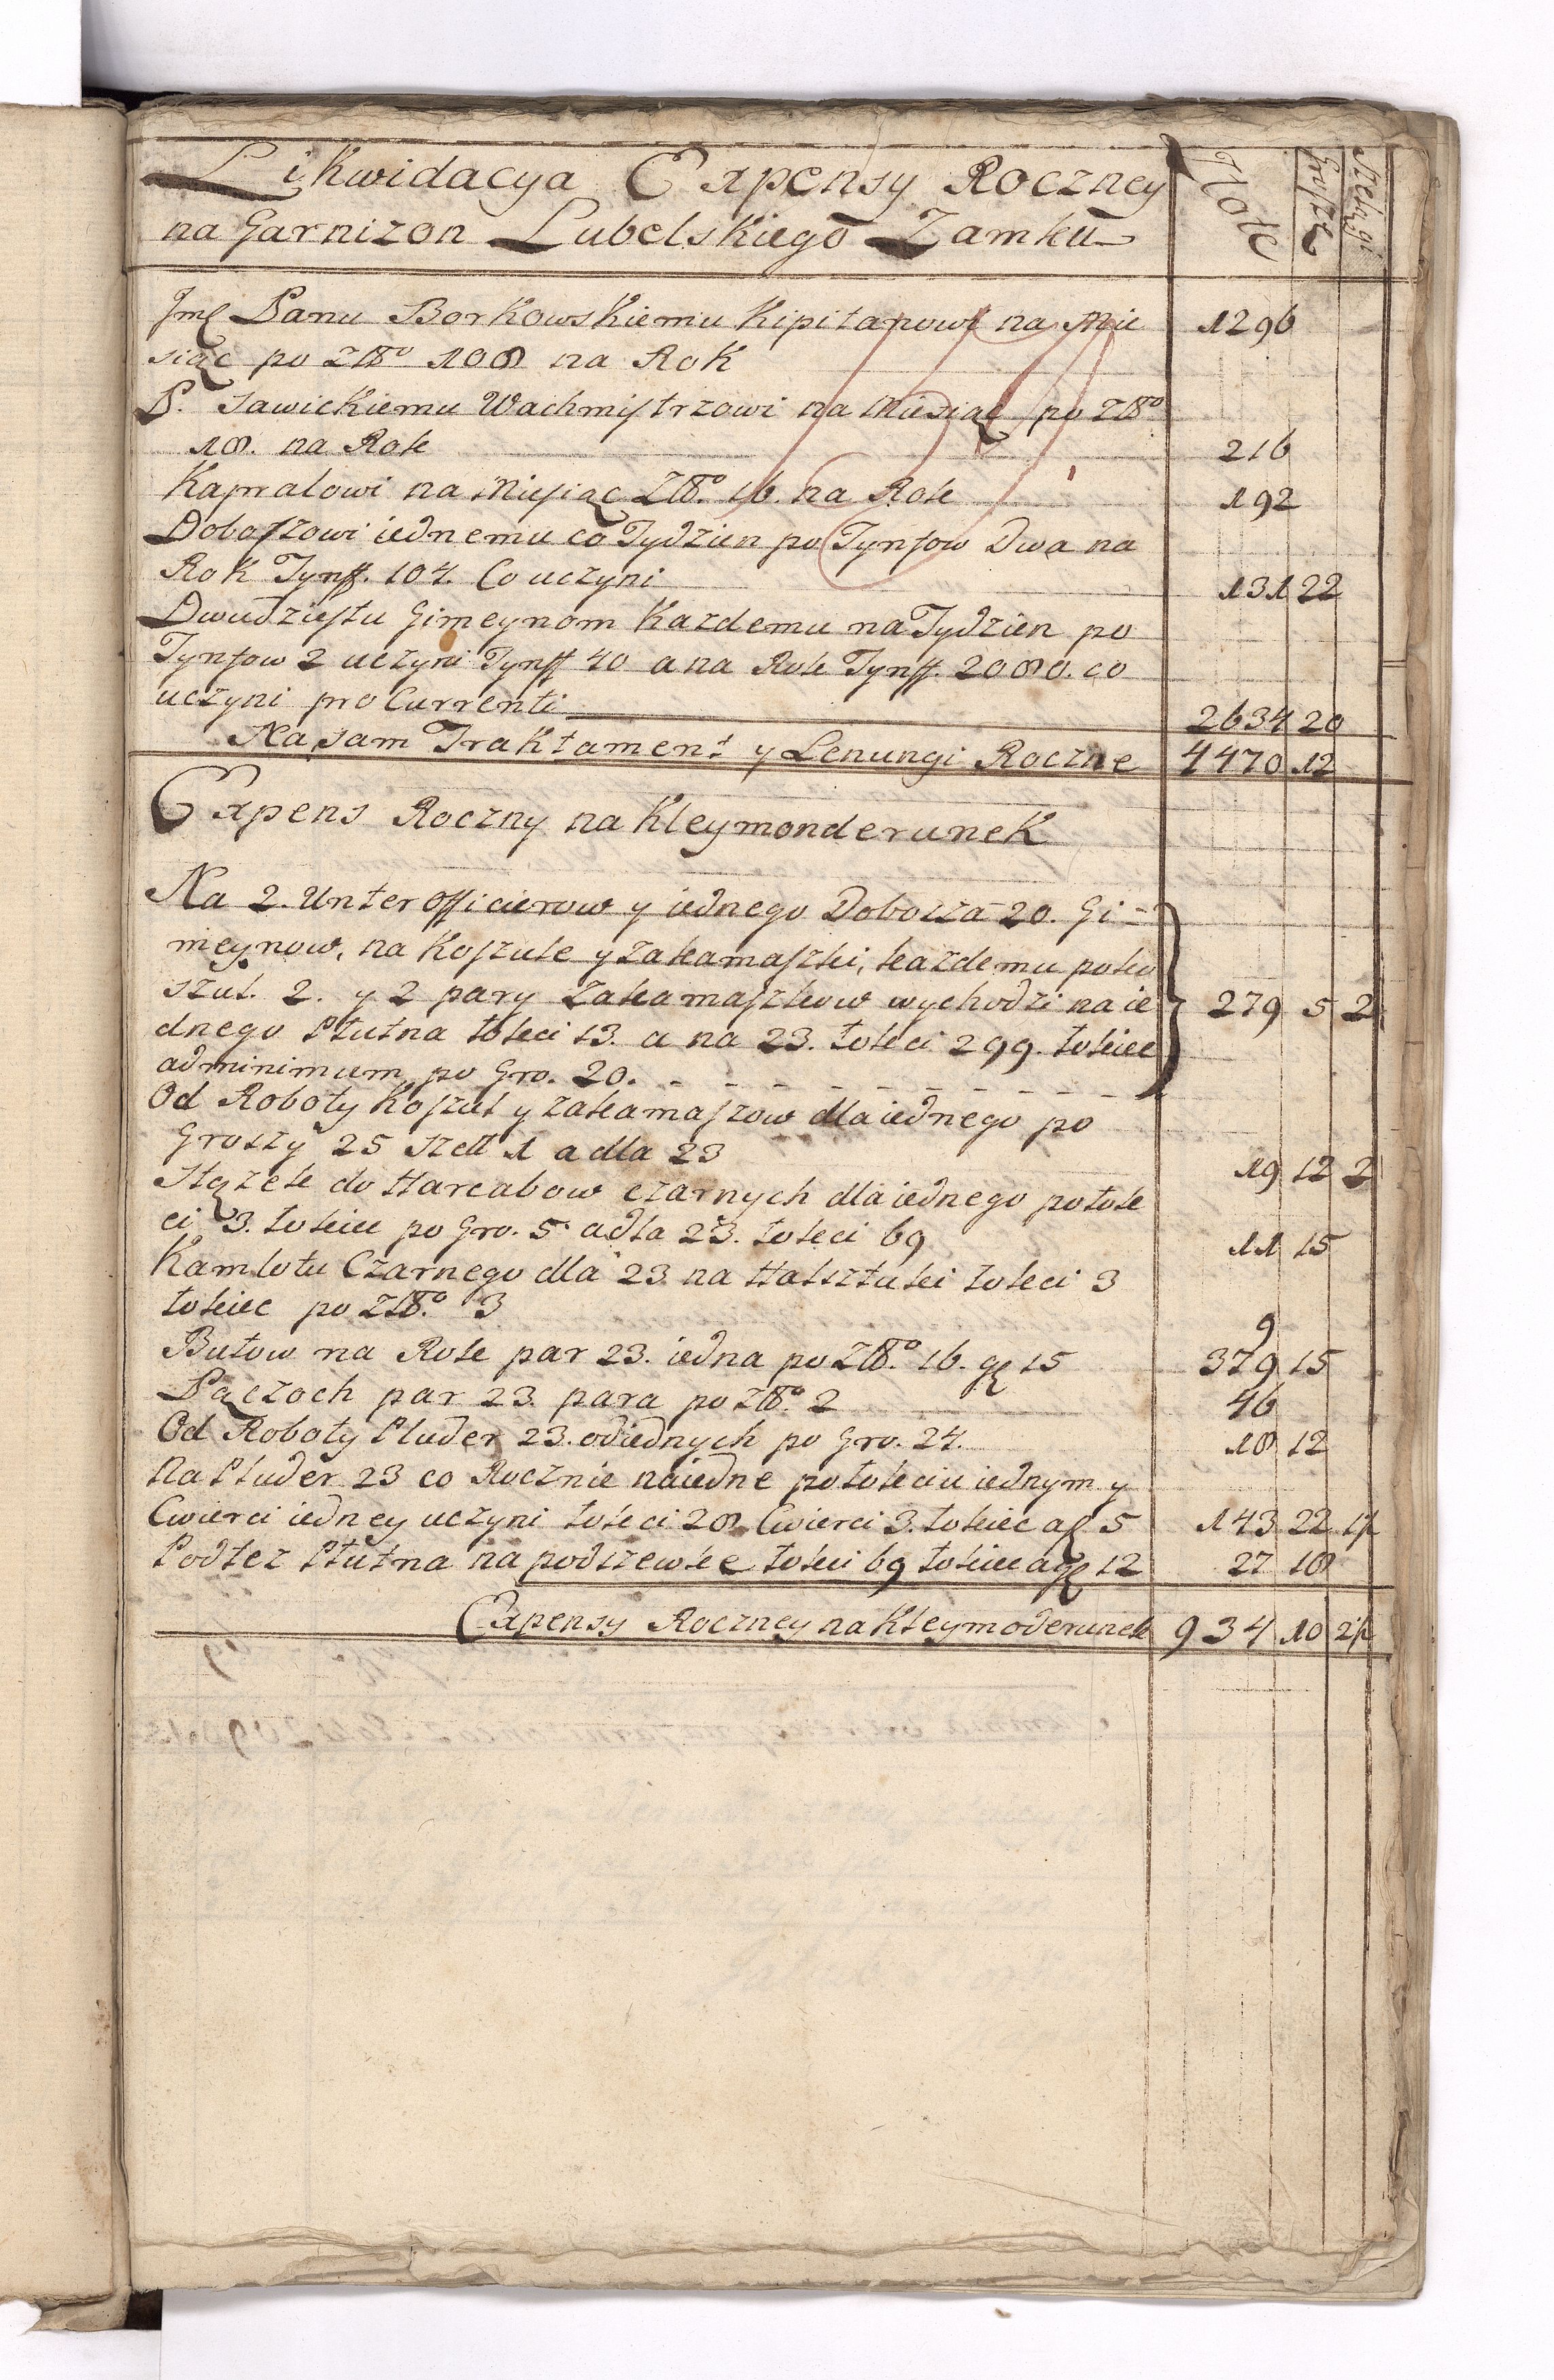 Likwidacya Expensy Roczney Złote Grosze Szelągi
na Garnizon Lubelskiego Zamku
Jmć Panu Borkowskiemu Kipitanowi na Mie 1296
siąc po Złło 108 na Rok
P. Sawickiemu Wachmistrzowi na Miesiąc po Złło
18. na Rok 216
Kapralowi na Miesiąc Złło. 16. na Rok 192
Doboszowi iednemu co Tydzien po Tynfow Dwa na
Rok Tynff. 104. Co uczyni 131 22
Dwudziestu Gimeynom Kazdemu na Tydzien po
Tynfow 2 uczyni Tynff 40 a na Rok Tynff. 2080. co
uczyni pro Currenti 2634 20
Na sam Traktament y Lenungi Roczne 4470 12
Expens Roczny na Kleymonderunek
Na 2. Unter Officierow y iednego Dobosza 20. Gi-
meynow, na Koszule y zakamaszki, kazdemu po ko
szul. 2. y 2 pary Zakamaszkow wychodzi na ie 279 5 2
dnego Płutna łokci 13. a na 23. łokci 299. łokiec
ad minimum po Gro. 20. - - - - - - - - - -
Od Roboty Koszul y zakamaszow dla iednego po
Groszy 25 Szell 1 a dla 23 19 12 2
Stązek do Harcabow czarnych dla iednego po łok
ci 3. łokiec po Gro. 5 a dla 23. łokci 69 11 15
Kamlotu Czarnego dla 23 na Halsztuki łokci 3
łokiec po Złło. 3 9
Butow na Rok par 23. iedna po Złło. 16. gr 15 379 15
Pączoch par 23. para po Złło. 2 46
Od Roboty Pluder 23. od iednych po Gro. 24. 18 12
Na Pluder 23 co Rocznie na iedne po łokciu iednym y
Cwierci iedney uczyni łokci 28 Cwierci 3. łokiec a f 5 143 22 1½
Podłez Płutna na podszewke łokci 69 łokiec a gr 12 27 18
Expensy Roczney na Kleymoderunek 934 10 2½